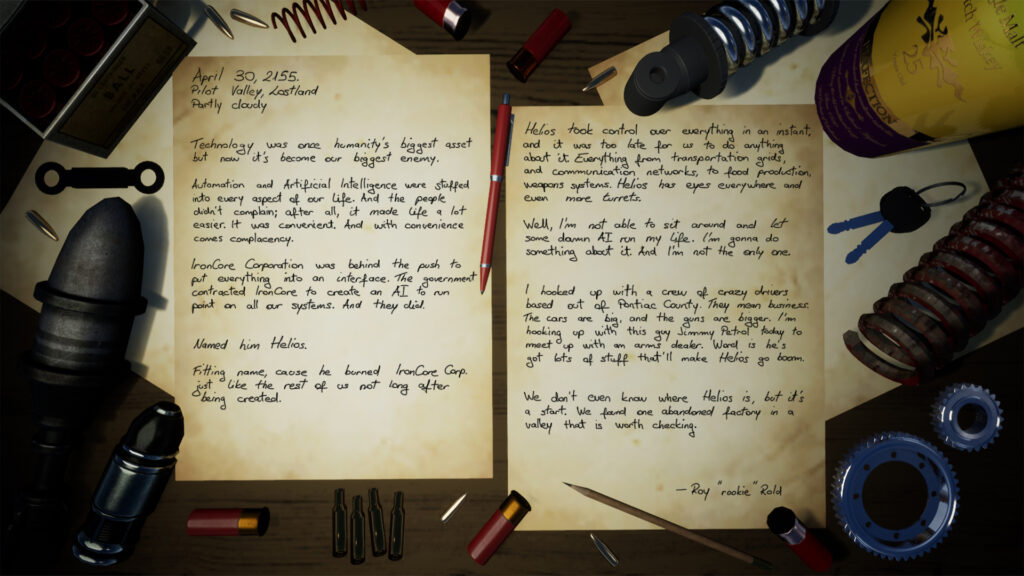 April 30, 2155.
Pilot Valley, Lostland
Partly cloudy
Technology was once humanity's biggest asset
but now it's become our biggest enemy.
Automation and Artificial Intelligence were stuffed
into every aspect of our life. And the people
didn't complain; after all, it made life a lot
easier. It was convenient. And with convenience
comes complacency.
IronCore Corporation was behind the push to
put everything into an interface. The government
contracted IronCore to create an AI to run
point on all our systems. And they did.
Named him Helios.
Fitting name, cause he burned IronCore Corp.
just like the rest of us not long after
being created.
Helios took control over everything in an instant,
and it was too late for us to do anything
about it. Everything from transportation grids,
and communication networks, to food production,
weapons systems. Helios has eyes everywhere and
even more turrets.
Well, I'm not able to sit around and let
some damn AI run my life. I'm gonna do
something about it. And I'm not the only one.
I hooked up with a crew of crazy drivers
based out of Pontiac County. They mean business.
The cars are big, and the guns are bigger. I'm
hooking up with this guy Jimmy Petrol today to
meet up with an arms dealer. Word is he's
got lots of stuff that'll make Helios go boom.
We don't even know where Helios is, but it's
a start. We found one abandoned factory in a
valley that is worth checking.
— Roy "rookie" Rold
BALL
Single Malt
25